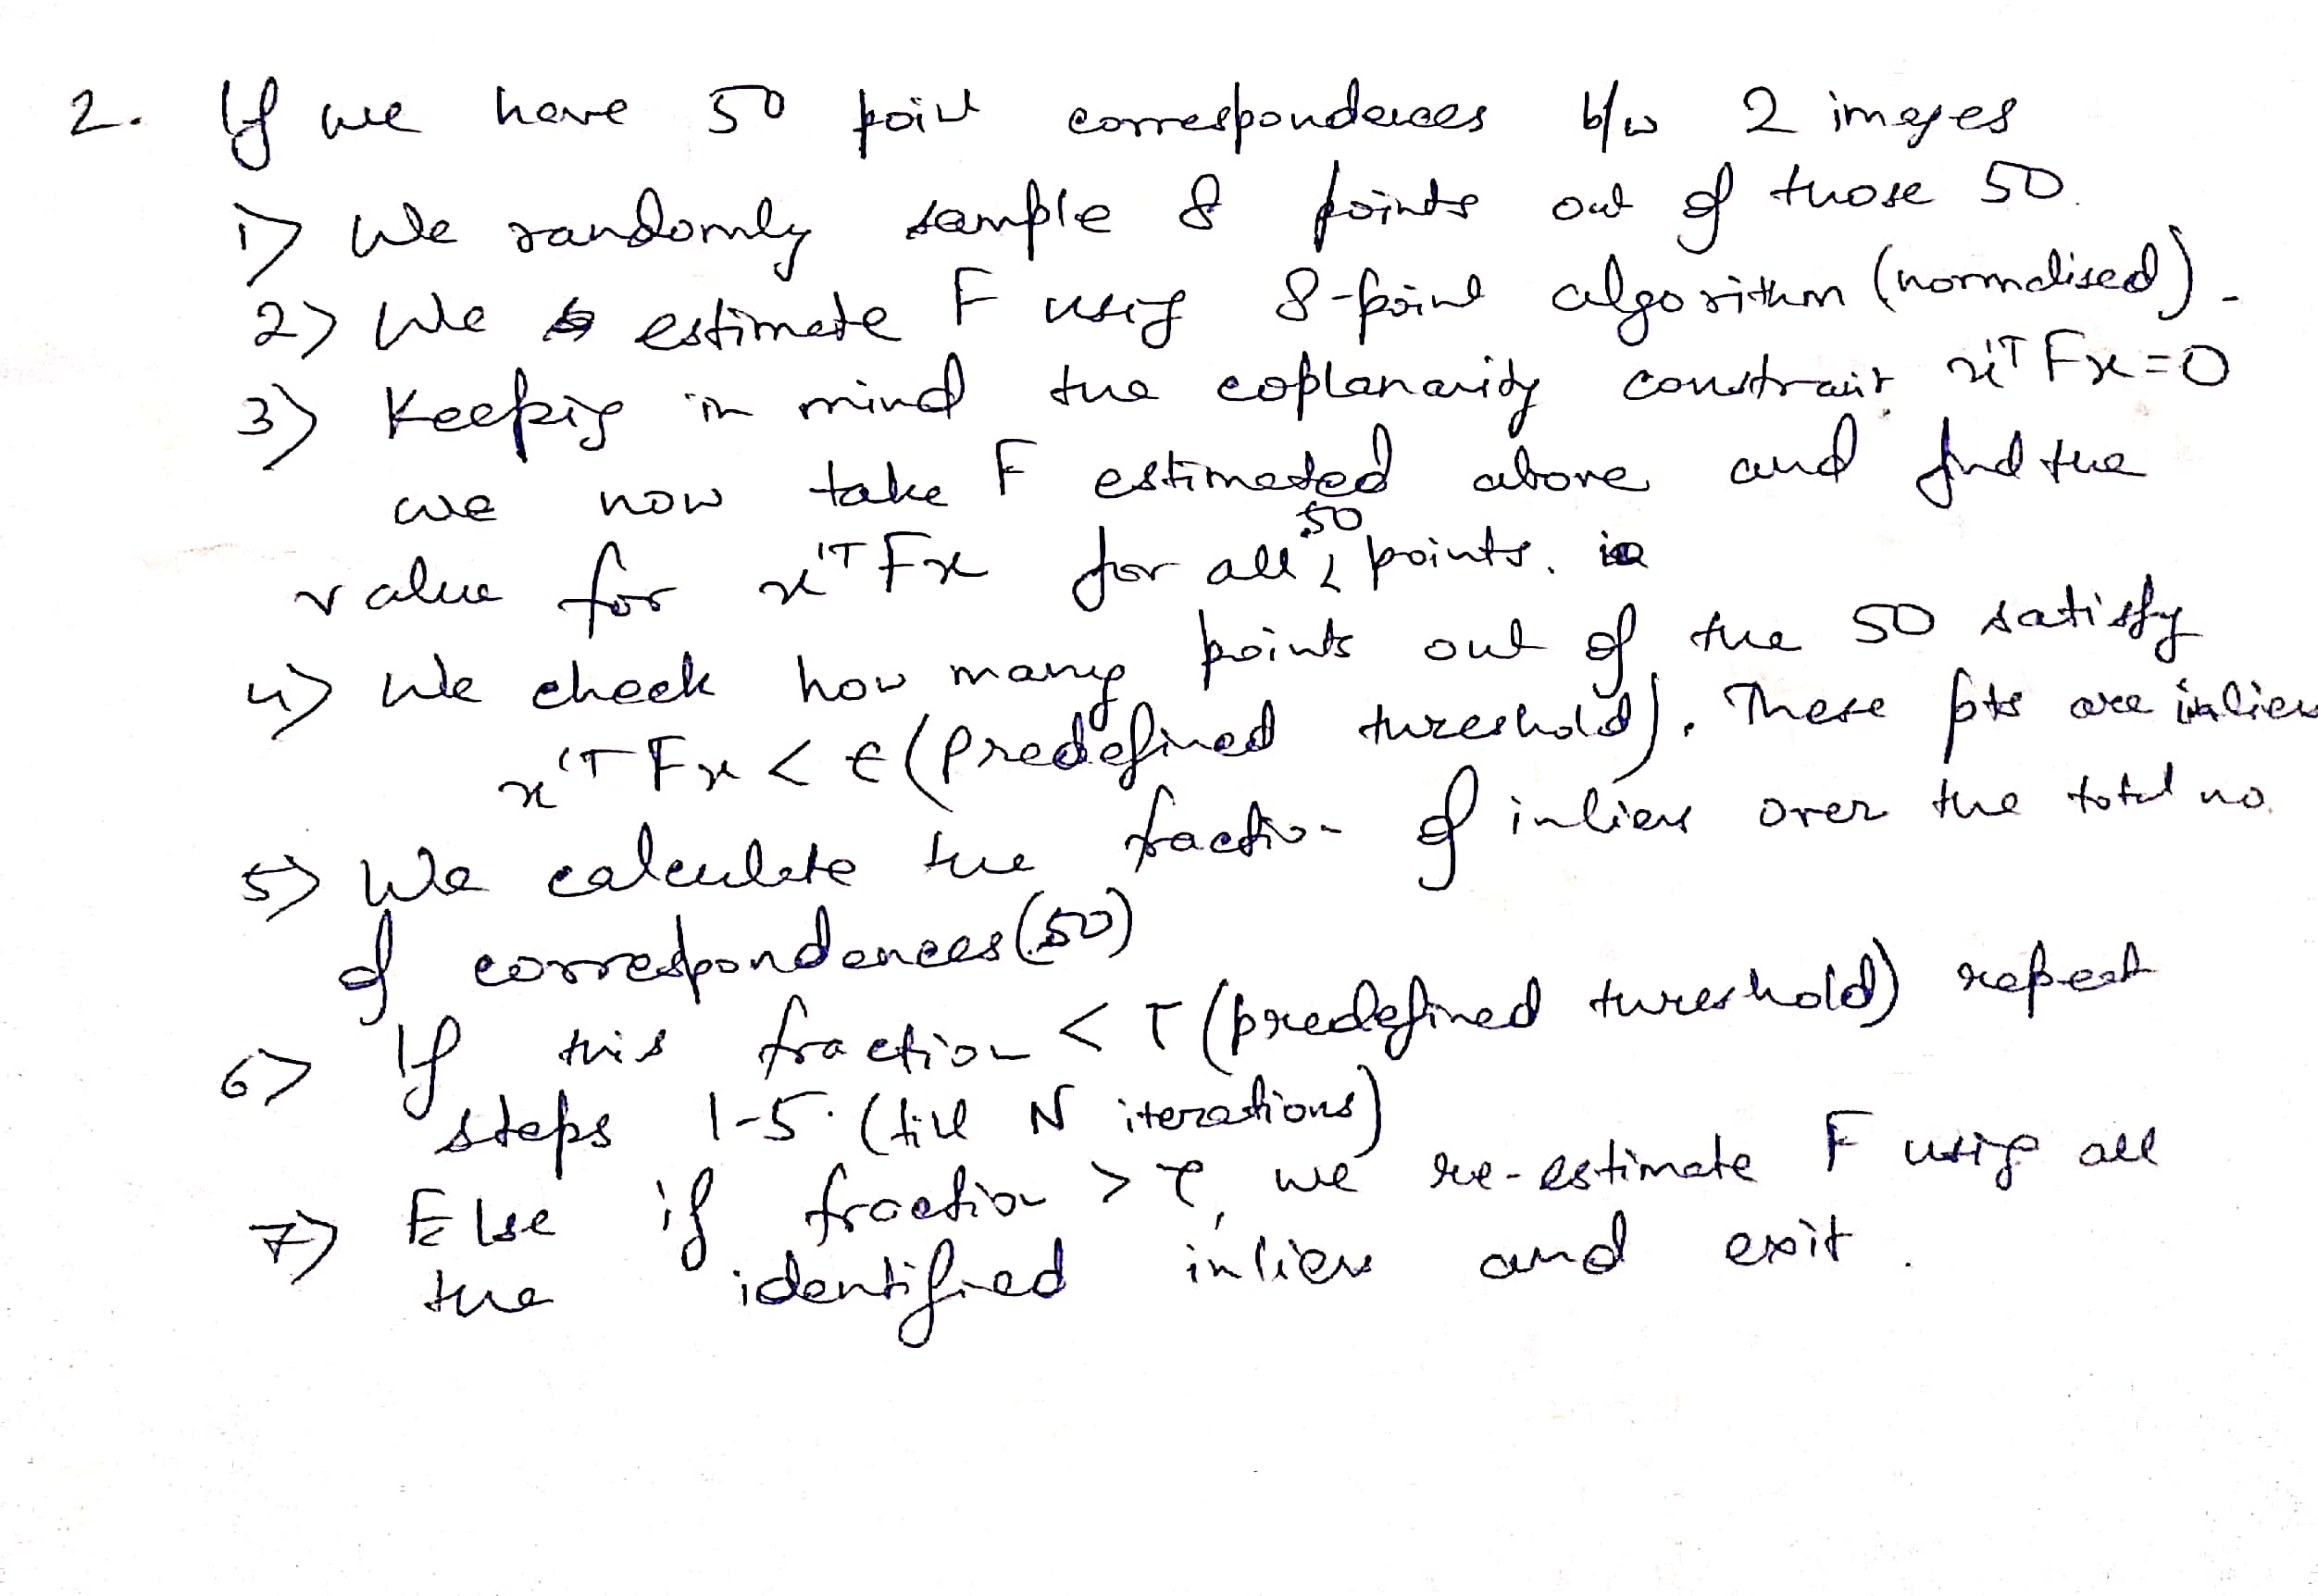 2. If we have 50 point correspondences b/w 2 images
1) We randomly sample 8 points out of those 50.
2) We estimate F using 8-point algorithm (normalised).
3) Keeping in mind the coplanarity constraint x'ᵀFx=0
we now take F estimated above and find the
value for x'ᵀFx for all 50 points.
4) We check how many points out of the 50 satisfy
x'ᵀFx < ε (predefined threshold). These pts are inliers
5) We calculate the fraction of inliers over the total no.
of correspondences (50)
6) If this fraction < τ (predefined threshold) repeat
steps 1-5. (till N iterations)
7) Else if fraction > τ, we re-estimate F using all
the identified inliers and exit.